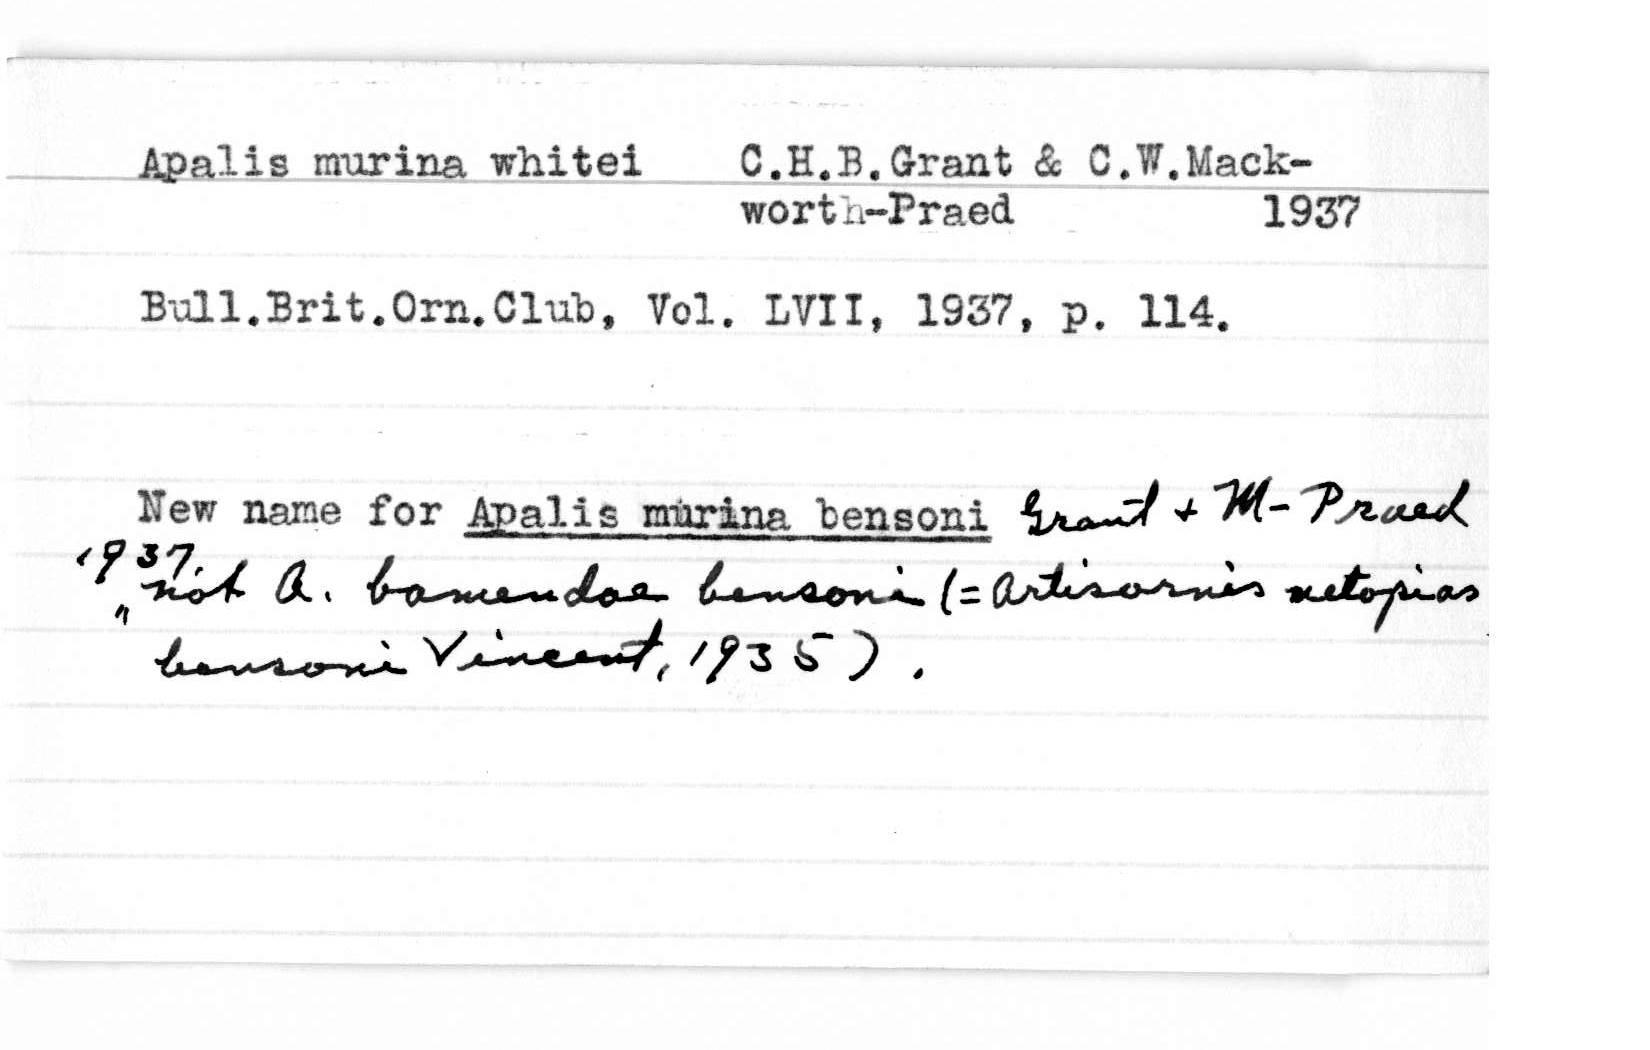 Apalis murina whitei C.H.B.Grant & C.W.Mack-
worth-Praed 1937
Bull.Brit.Orn.Club, Vol. LVII, 1937, p. 114.
New name for Apalis murina bensoni Grant + M-Praed
1937.
" not A. bamendae bensoni (= Artisornis metopias
bensoni Vincent, 1935).